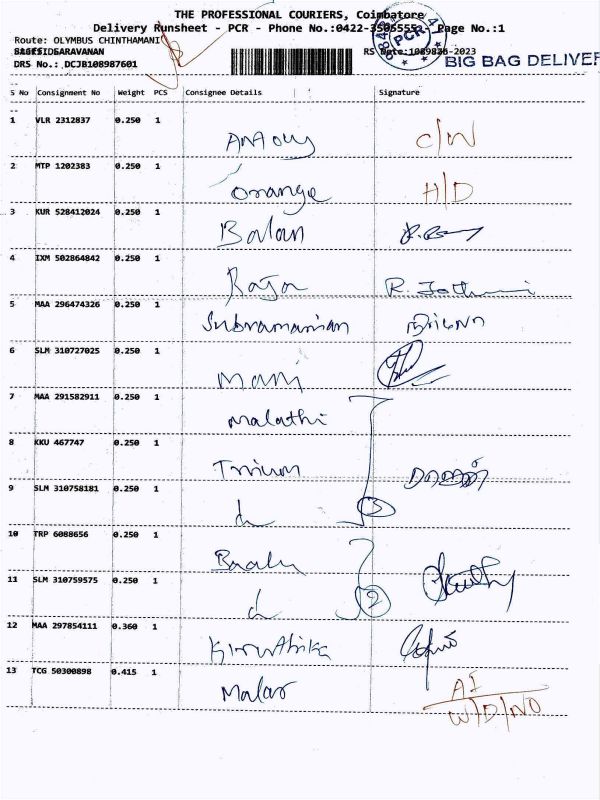 THE PROFESSIONAL COURIERS, Coimbatore
Delivery Runsheet - PCR - Phone No.:0422- Page No.:1
Route: OLYMBUS CHINTHAMANI
SARAVANAN
DRS No.: DCJB108987601
PCR
BIG BAG DELIVER
S No Consignment No Weight PCS Consignee Details Signature
1 VLR 2312837 0.250 1 Antony C/W
2 MTP 1202383 0.250 1 Orange H/D
3 KUR 528412024 0.250 1 Balan
4 IXM 502864842 0.250 1 Raja
5 MAA 296474326 0.250 1 Subramanian
6 SLM 310727025 0.250 1 Mani
7 MAA 291582911 0.250 1 Malathi
8 KKU 467747 0.250 1
9 SLM 310758181 0.250 1 3
10 TRP 6088656 0.250 1
11 SLM 310759575 0.250 1 2
12 MAA 297854111 0.360 1 Kiruthika
13 TCG 50300898 0.415 1 Malar
W/D/NO